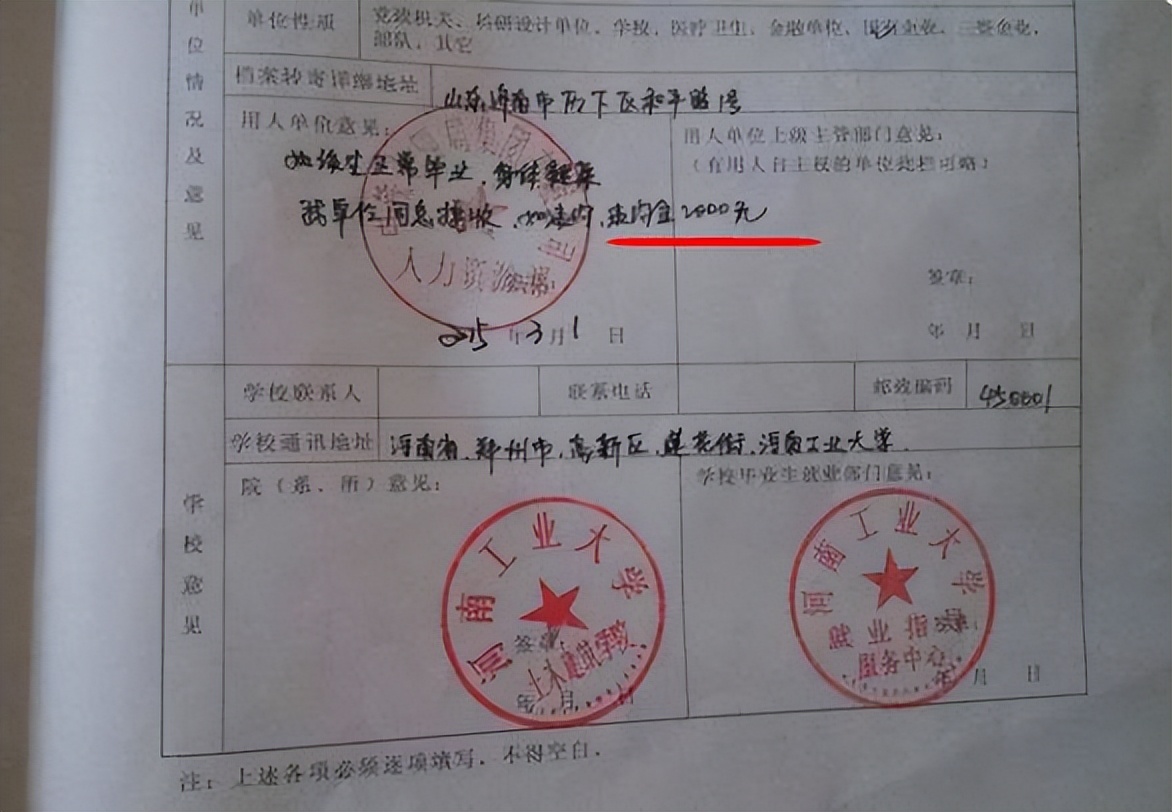 单位情况及意见
单位性质
党政机关、科研设计单位、学校、医疗卫生、金融单位、国有企业、三资企业、
部队、其它
档案转寄详细地址
山东济南市历下区和平路1号
用人单位意见:
如该生正常毕业,身体健康
我单位同意接收,如违约,违约金2000元
局集团
人力资源
2015年3月1日
用人单位上级主管部门意见:
(有用人自主权的单位此栏可略)
签章:
年 月 日
学校联系人
联系电话
邮政编码
450001
学校通讯地址
河南省,郑州市,高新区,莲花街,河南工业大学.
学校意见
院(系、所)意见:
河南工业大学
签章:
土木建筑学院
年 月 日
学校毕业生就业部门意见:
河南工业大学
就业指导
服务中心
年 月 日
注: 上述各项必须逐项填写,不得空白.